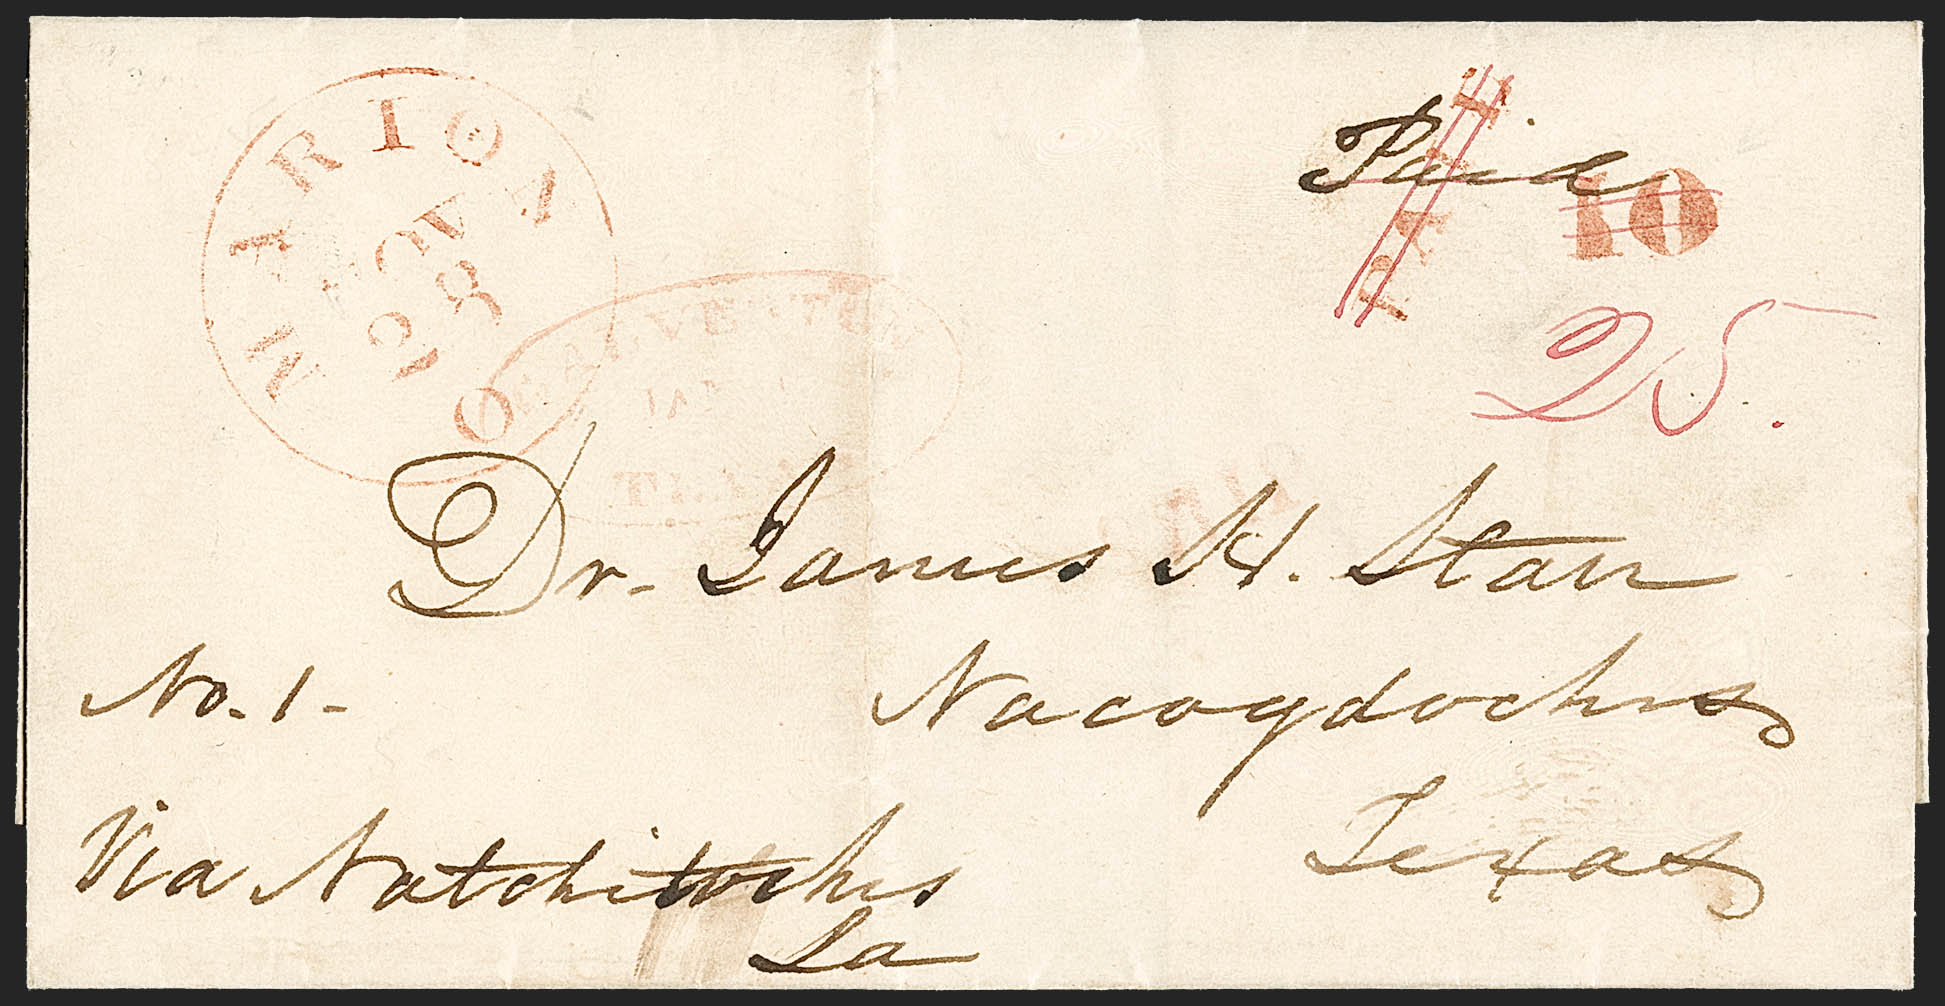 MARION
NOV
28
O
GALVESTON
JAN
TEXAS
Paid
PAID
10
25.
Dr. James H. Starr
No. 1-
Nacogdoches
Texas
Via Natchitoches
La